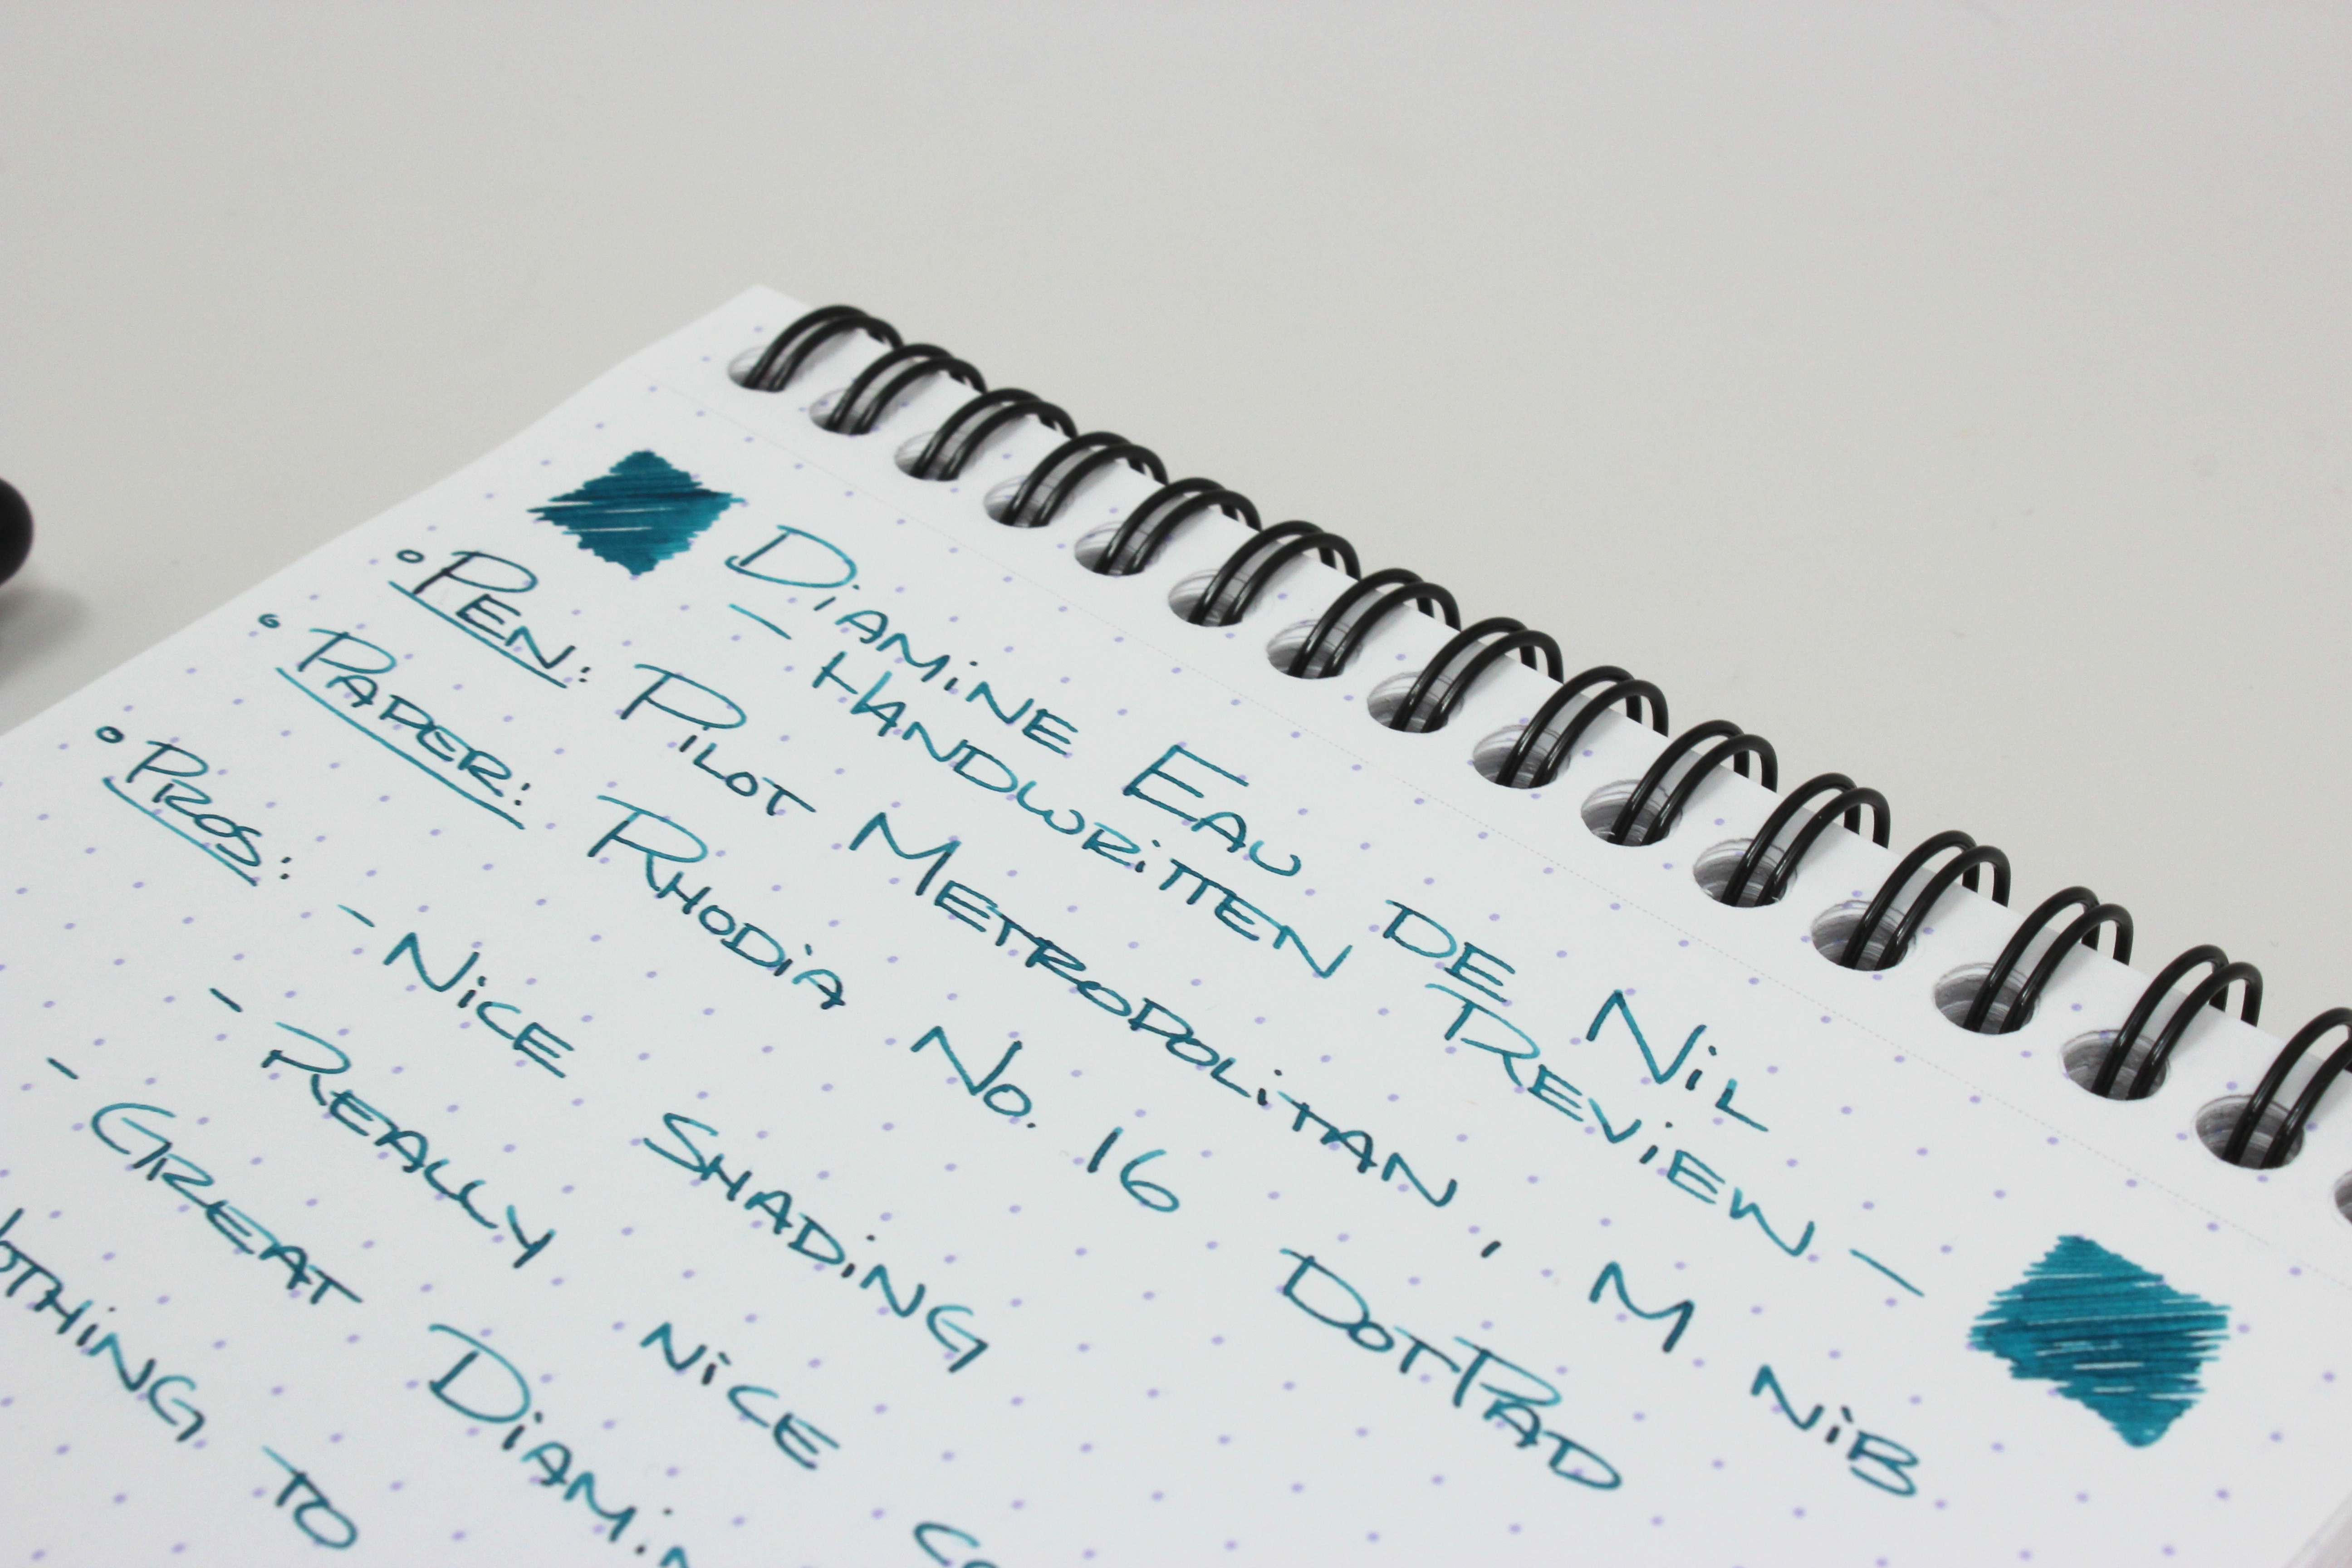 Diamine Eau de Nil
- Handwritten Review -
• Pen: Pilot Metropolitan, M Nib
• Paper: Rhodia No. 16 DotPad
• Pros: - Nice Shading
- Really nice
- Great Diamin
to